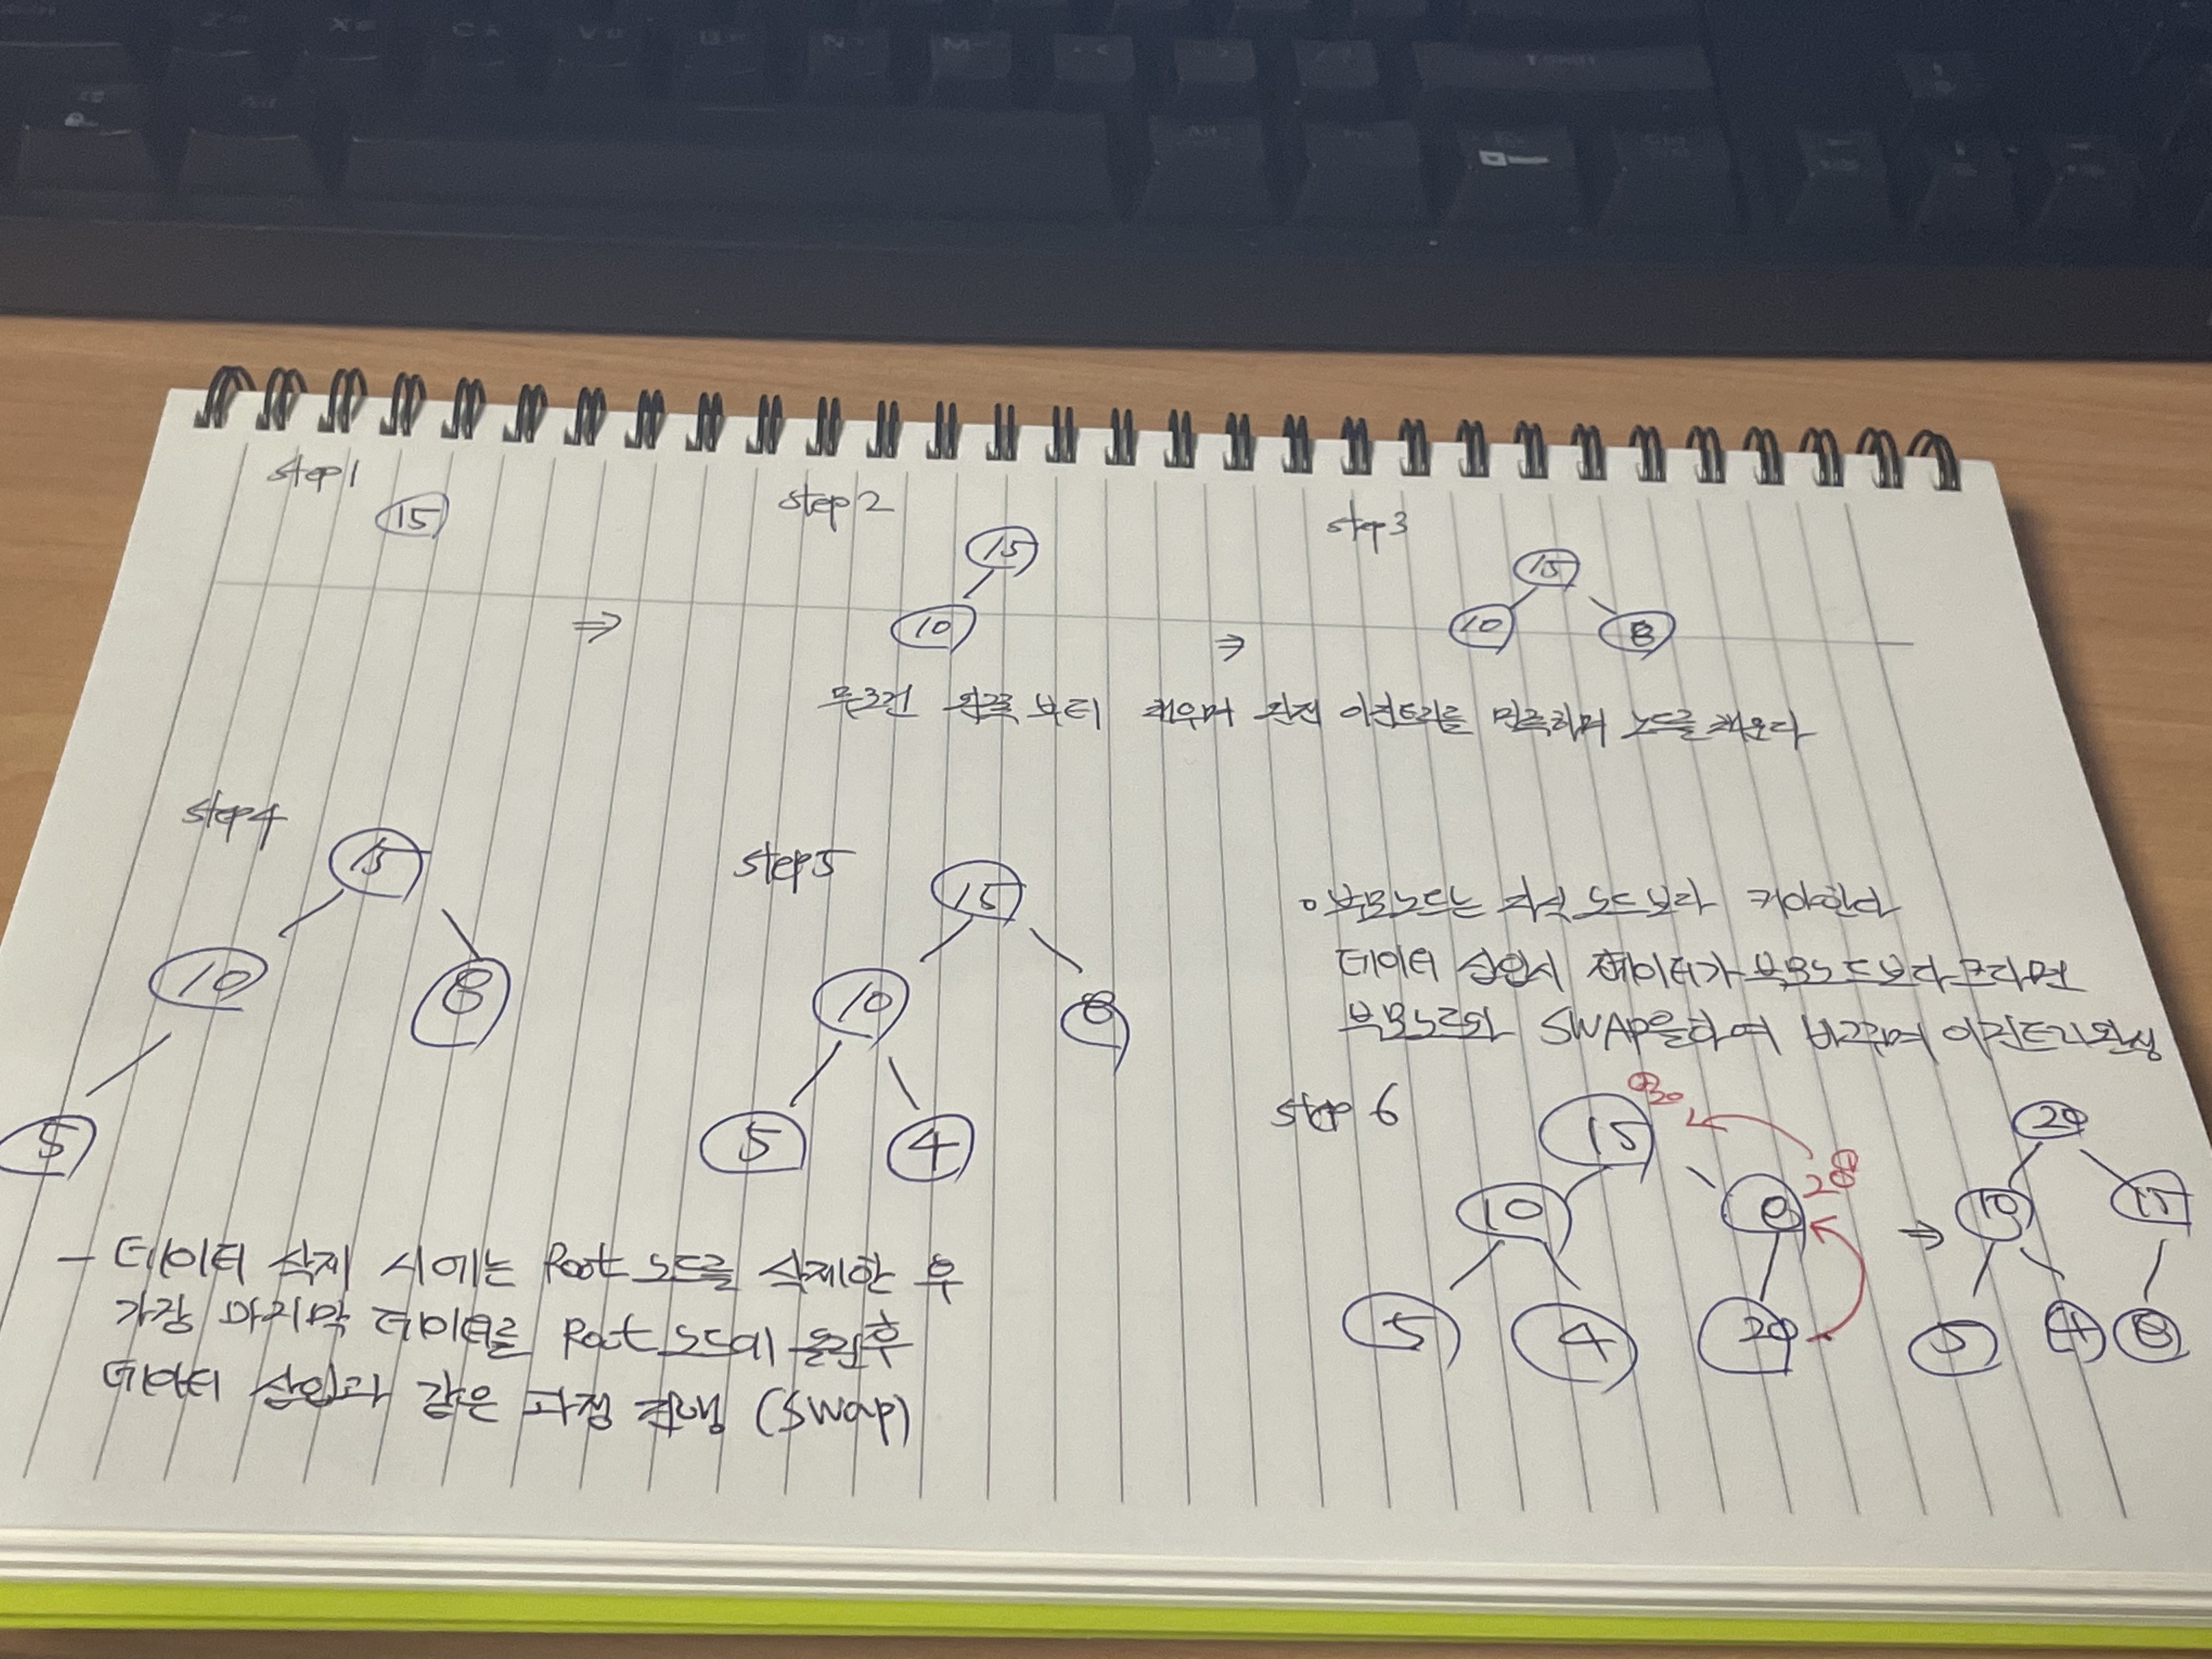 step1
15
step2
15
10
step3
15
10 8
⇒ ⇒
무조건 왼쪽 부터 채우며 완전 이진트리를 만족하며 노드를 채운다
step4
15
10 8
5
step5
15
10 8
5 4
○ 부모노드는 자식 노드보다 커야한다
데이터 삽입시 데이터가 부모노드보다 크다면
부모노드와 SWAP을하여 바꾸며 이진트리완성
step 6
15 ② 20
10 8 20 ①
5 4 20
⇒
20
10 15
5 4 8
- 데이터 삭제 시에는 Root 노드를 삭제한 후
가장 마지막 데이터를 Root 노드에 올린후
데이터 삽입과 같은 과정 진행 (Swap)